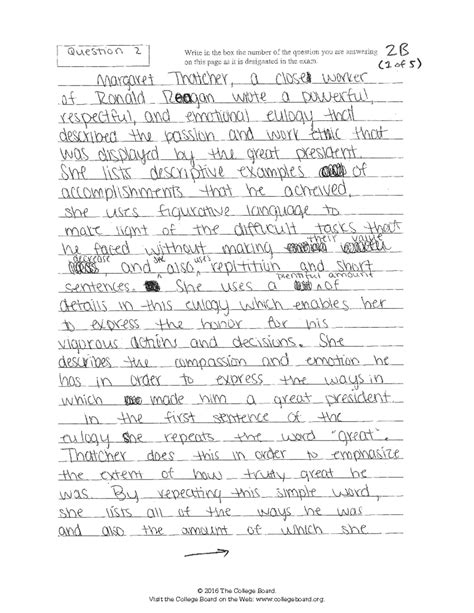 Question 2
Write in the box the number of the question you are answering
on this page as it is designated in the exam.
2B
(1 of 5)
Margaret Thatcher, a close worker
of Ronald Reagan wrote a powerful,
respectful, and emotional eulogy that
described the passion and work ethic that
was displayed by the great president.
She lists descriptive examples of
accomplishments that he acheived,
she uses figurative language to
make light of the difficult tasks that
he faced without making their value
decrease and she also uses reptitiion and short
sentences. She uses a plentiful amount of
details in this eulogy which enables her
to express the honor for his
vigorous actions and decisions. She
describes the compassion and emotion he
has in order to express the ways in
which made him a great president.
In the first sentence of the
eulogy she repeats the word "great".
Thatcher does this in order to emphasize
the extent of how truly great he
was. By repeating this simple word,
she lists all of the ways he was
and also the amount of which she
© 2016 The College Board.
Visit the College Board on the Web: www.collegeboard.org.